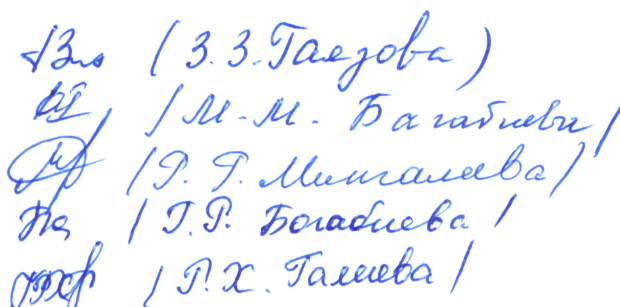 (З.З. Гаязова)
/ М.М. Багабиева /
/ Г.Г. Мингалеева /
/ Г.Р. Богабиева /
/ Г.Х. Галиева /